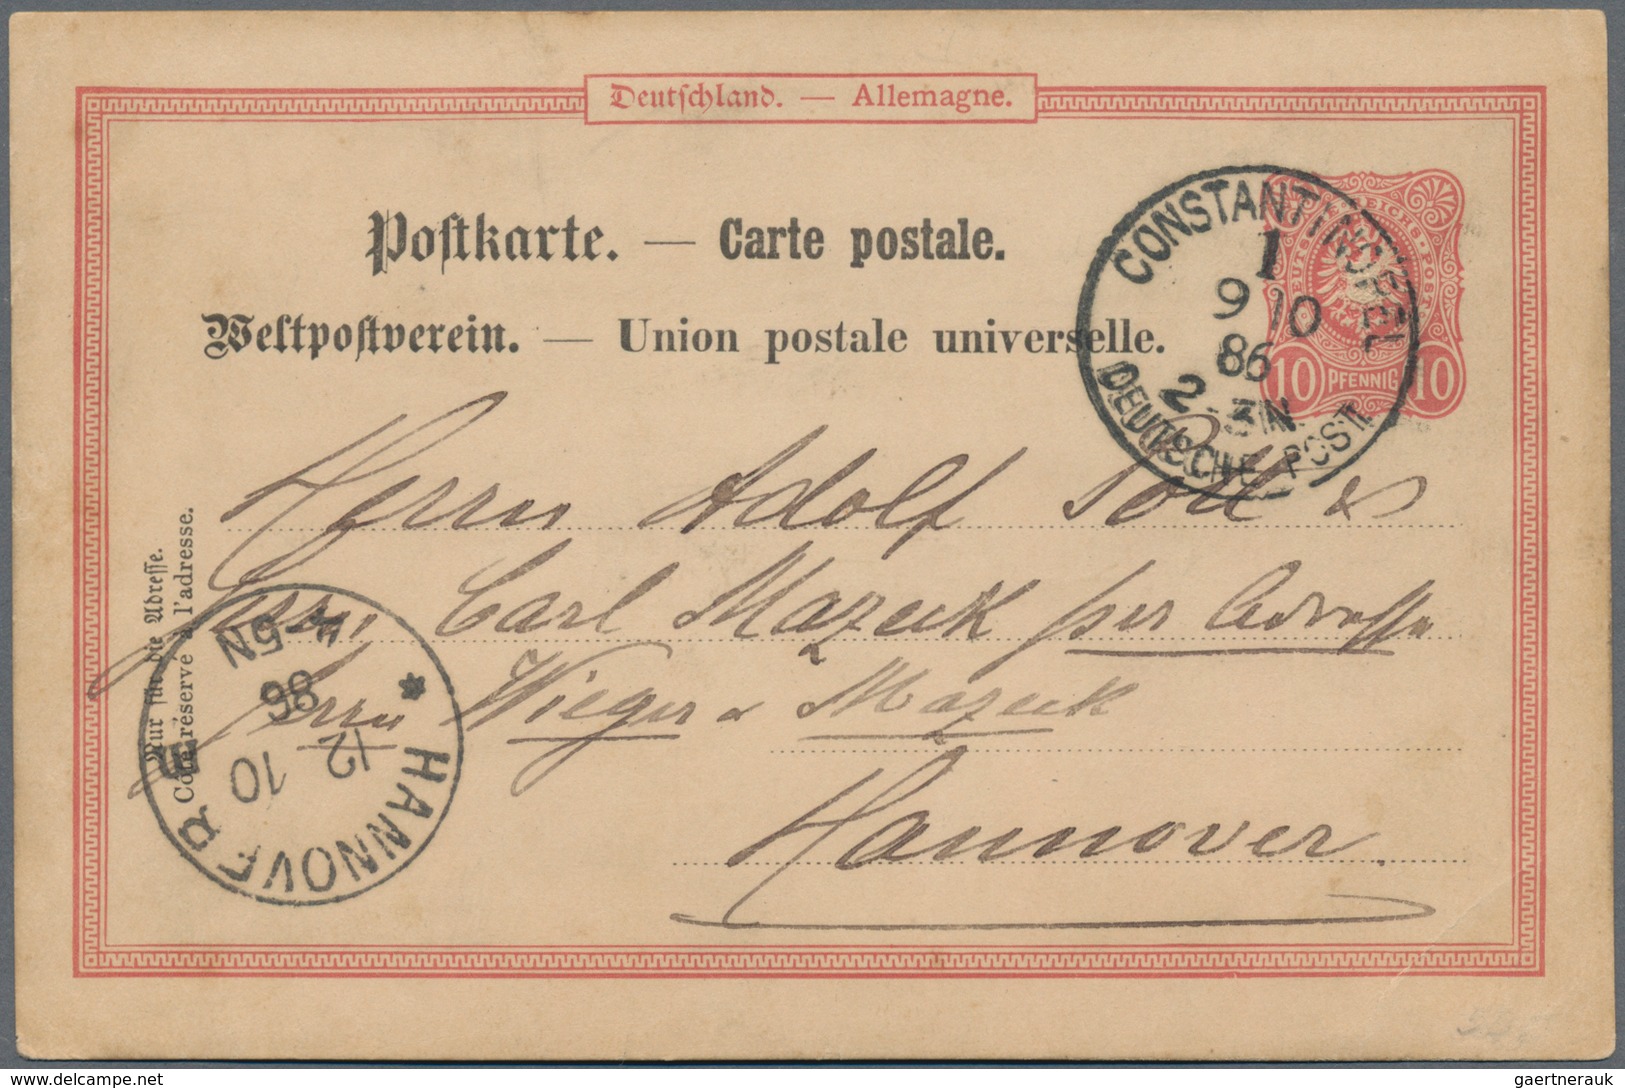 Deutschland. — Allemagne.
Postkarte. — Carte postale.
Weltpostverein. — Union postale universelle.
CONSTANTINOPEL
1
9 10
86
2-3N.
DEUTSCHE POST
DEUTSCHE REICHS-POST
10 PFENNIG 10
Herrn Adolf &
Carl Mazeck per Adresse
Herrn Wieger & Mazeck
Hannover.
Nur für die Adresse.
Côté réservé à l'adresse.
* HANNOVER
12 10
86
4-5N
delcampe.net
gaertnerauk